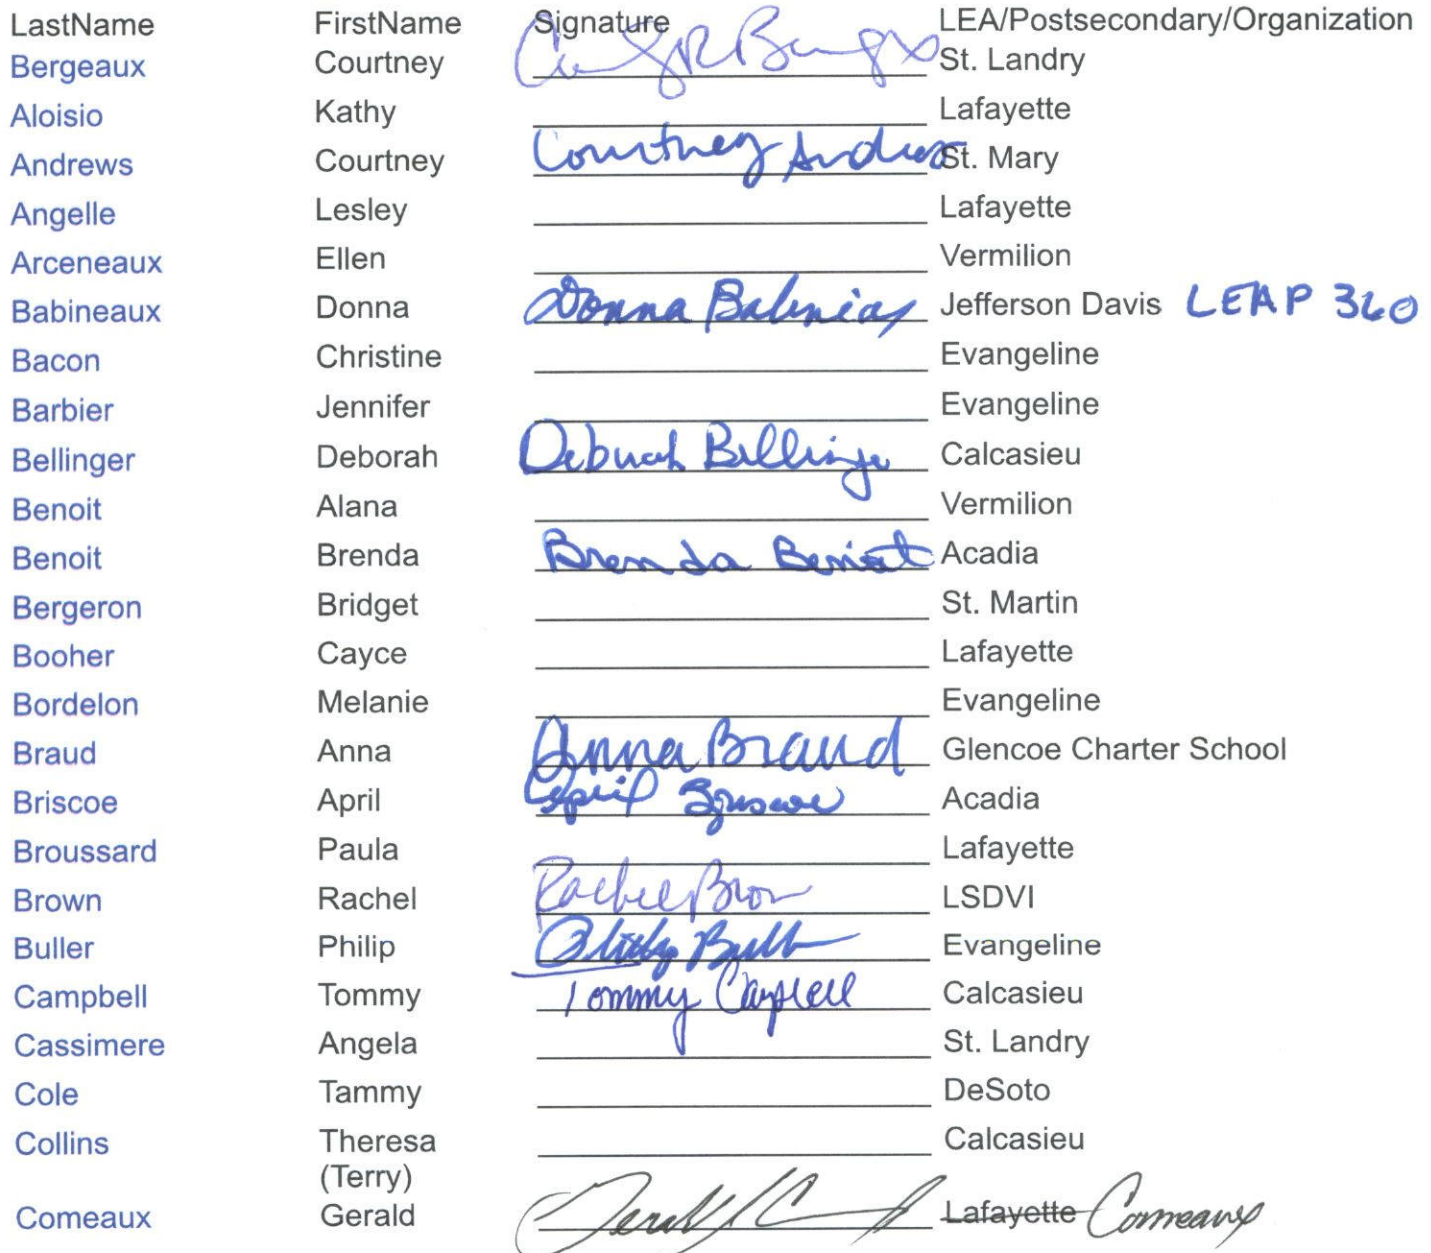 LastName FirstName Signature LEA/Postsecondary/Organization
Bergeaux Courtney St. Landry
Aloisio Kathy Lafayette
Andrews Courtney Courtney Andrews St. Mary
Angelle Lesley Lafayette
Arceneaux Ellen Vermilion
Babineaux Donna Donna Babineaux Jefferson Davis LEAP 360
Bacon Christine Evangeline
Barbier Jennifer Evangeline
Bellinger Deborah Deborah Bellinger Calcasieu
Benoit Alana Vermilion
Benoit Brenda Brenda Benoit Acadia
Bergeron Bridget St. Martin
Booher Cayce Lafayette
Bordelon Melanie Evangeline
Braud Anna Anna Braud Glencoe Charter School
Briscoe April April Briscoe Acadia
Broussard Paula Lafayette
Brown Rachel Rachel Brown LSDVI
Buller Philip Evangeline
Campbell Tommy Tommy Campbell Calcasieu
Cassimere Angela St. Landry
Cole Tammy DeSoto
Collins Theresa Calcasieu
(Terry)
Comeaux Gerald Lafayette Comeaux